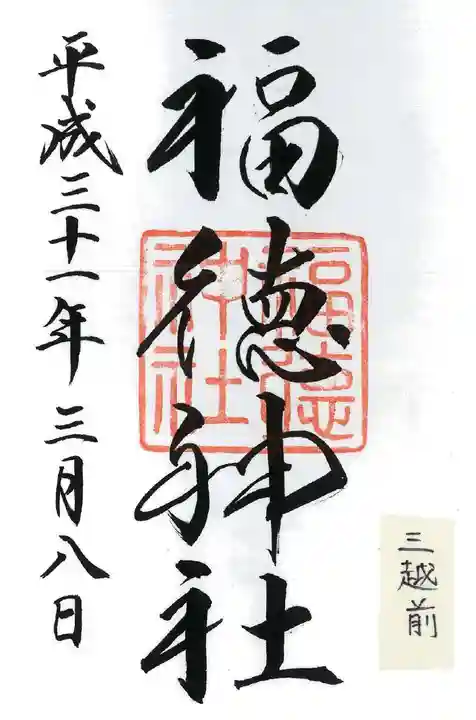 三越前
福徳神社
福徳
神社
平成三十一年三月八日